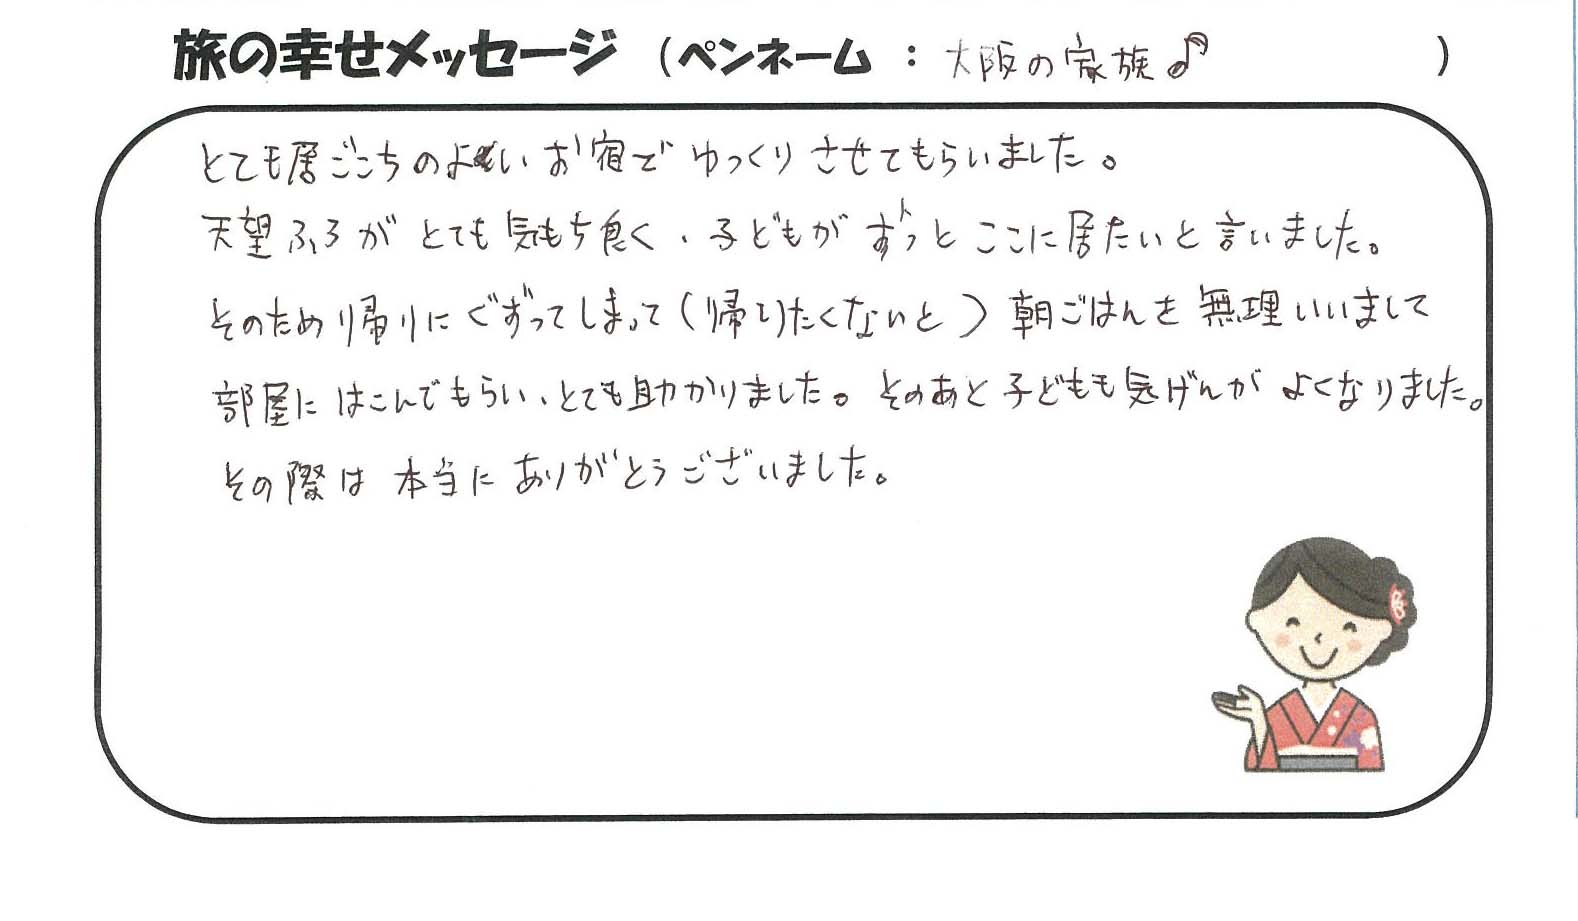 旅の幸せメッセージ (ペンネーム : 大阪の家族♪ )
とても居ごこちのよい お宿で ゆっくりさせてもらいました。
天望ふろがとても気もち良く、子どもがずっとここに居たいと言いました。
そのため帰りにぐずってしまって(帰りたくないと)朝ごはんを無理いいまして
部屋にはこんでもらい、とても助かりました。そのあと子どもも気げんがよくなりました。
その際は本当にありがとうございました。